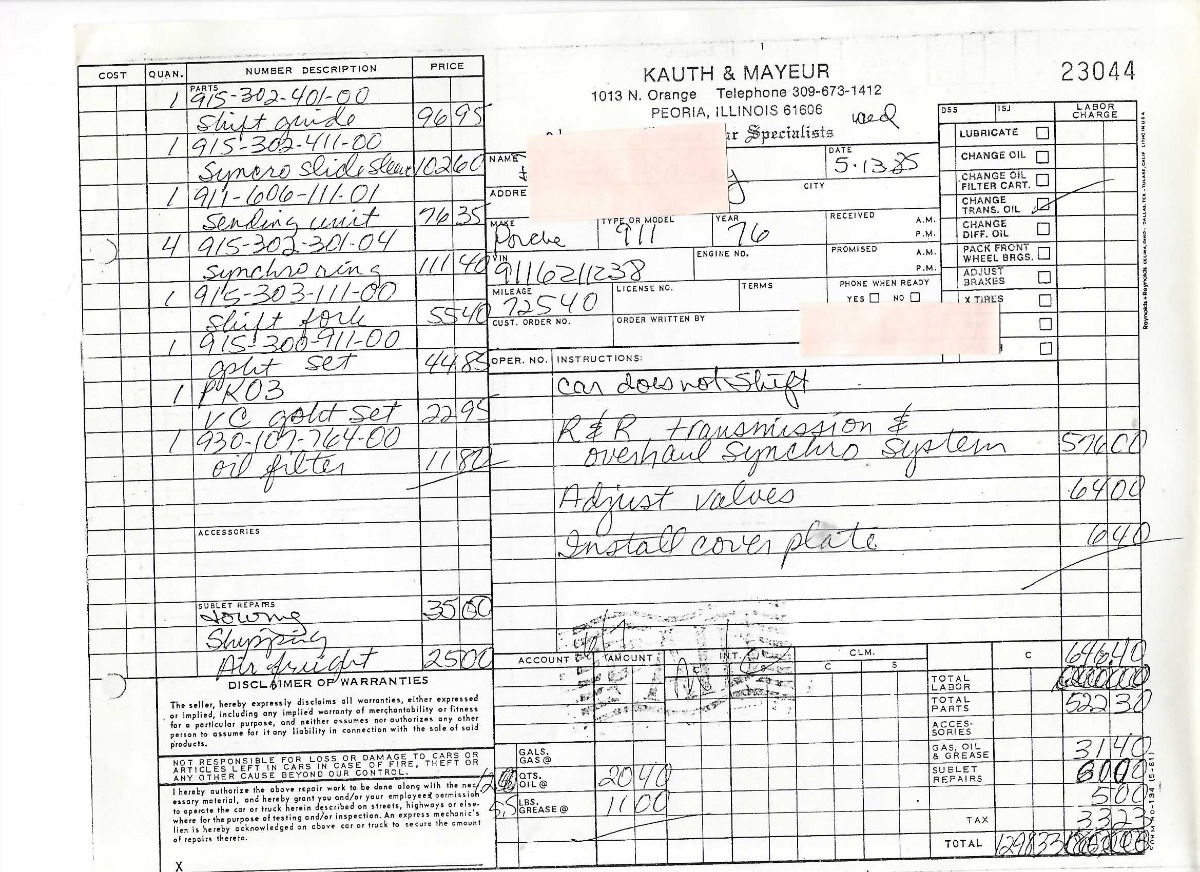 COST QUAN. NUMBER DESCRIPTION PRICE
PARTS
1 915-302-401-00
Shift guide 96 95
1 915-302-411-00
Syncro slide sleeve 102 60
1 911-606-111-01
Sending unit 76 35
4 915-302-301-04
Synchro ring 111 40
1 915-303-111-00
Shift fork 55 40
1 915-300-911-00
gskt set 44 85
1 PR03
VC gskt set 22 95
1 930-107-764-00
oil filter 11 80
ACCESSORIES
SUBLET REPAIRS
towing 35 00
Shipping
Air freight 25 00
DISCLAIMER OF WARRANTIES
The seller, hereby expressly disclaims all warranties, either expressed
or implied, including any implied warranty of merchantability or fitness
for a particular purpose, and neither assumes nor authorizes any other
person to assume for it any liability in connection with the sale of said
products.
NOT RESPONSIBLE FOR LOSS OR DAMAGE TO CARS OR
ARTICLES LEFT IN CARS IN CASE OF FIRE, THEFT OR
ANY OTHER CAUSE BEYOND OUR CONTROL.
I hereby authorize the above repair work to be done along with the nec
essary material, and hereby grant you and/or your employees permission
to operate the car or truck herein described on streets, highways or else-
where for the purpose of testing and/or inspection. An express mechanic's
lien is hereby acknowledged on above car or truck to secure the amount
of repairs thereto.
X
KAUTH & MAYEUR
1013 N. Orange Telephone 309-673-1412
PEORIA, ILLINOIS 61606
Specialists
wed
23044
NAME
DATE
5-13-85
ADDRE
CITY
MAKE
Porche
TYPE OR MODEL
911
YEAR
76
RECEIVED A.M.
P.M.
VIN
9116211238
ENGINE NO.
PROMISED A.M.
P.M.
MILEAGE
72540
LICENSE NO.
TERMS
PHONE WHEN READY
YES NO
CUST. ORDER NO.
ORDER WRITTEN BY
DSS ISJ LABOR
CHARGE
LUBRICATE
CHANGE OIL
CHANGE OIL
FILTER CART.
CHANGE
TRANS. OIL
CHANGE
DIFF. OIL
PACK FRONT
WHEEL BRGS.
ADJUST
BRAKES
X TIRES
OPER. NO. INSTRUCTIONS:
car does not shift
R & R transmission &
overhaul synchro system 576 00
Adjust valves 64 00
Install cover plate 6 40
ACCOUNT AMOUNT INT. CLM.
C S
C 646.40
TOTAL
LABOR
TOTAL
PARTS 522 30
ACCES-
SORIES
GALS.
GAS @
GAS, OIL
& GREASE 31 40
QTS.
OIL @ 20 40
SUBLET
REPAIRS 60 00
5.5 LBS.
GREASE @ 11 00
5 00
TAX 33 23
TOTAL 1298 33